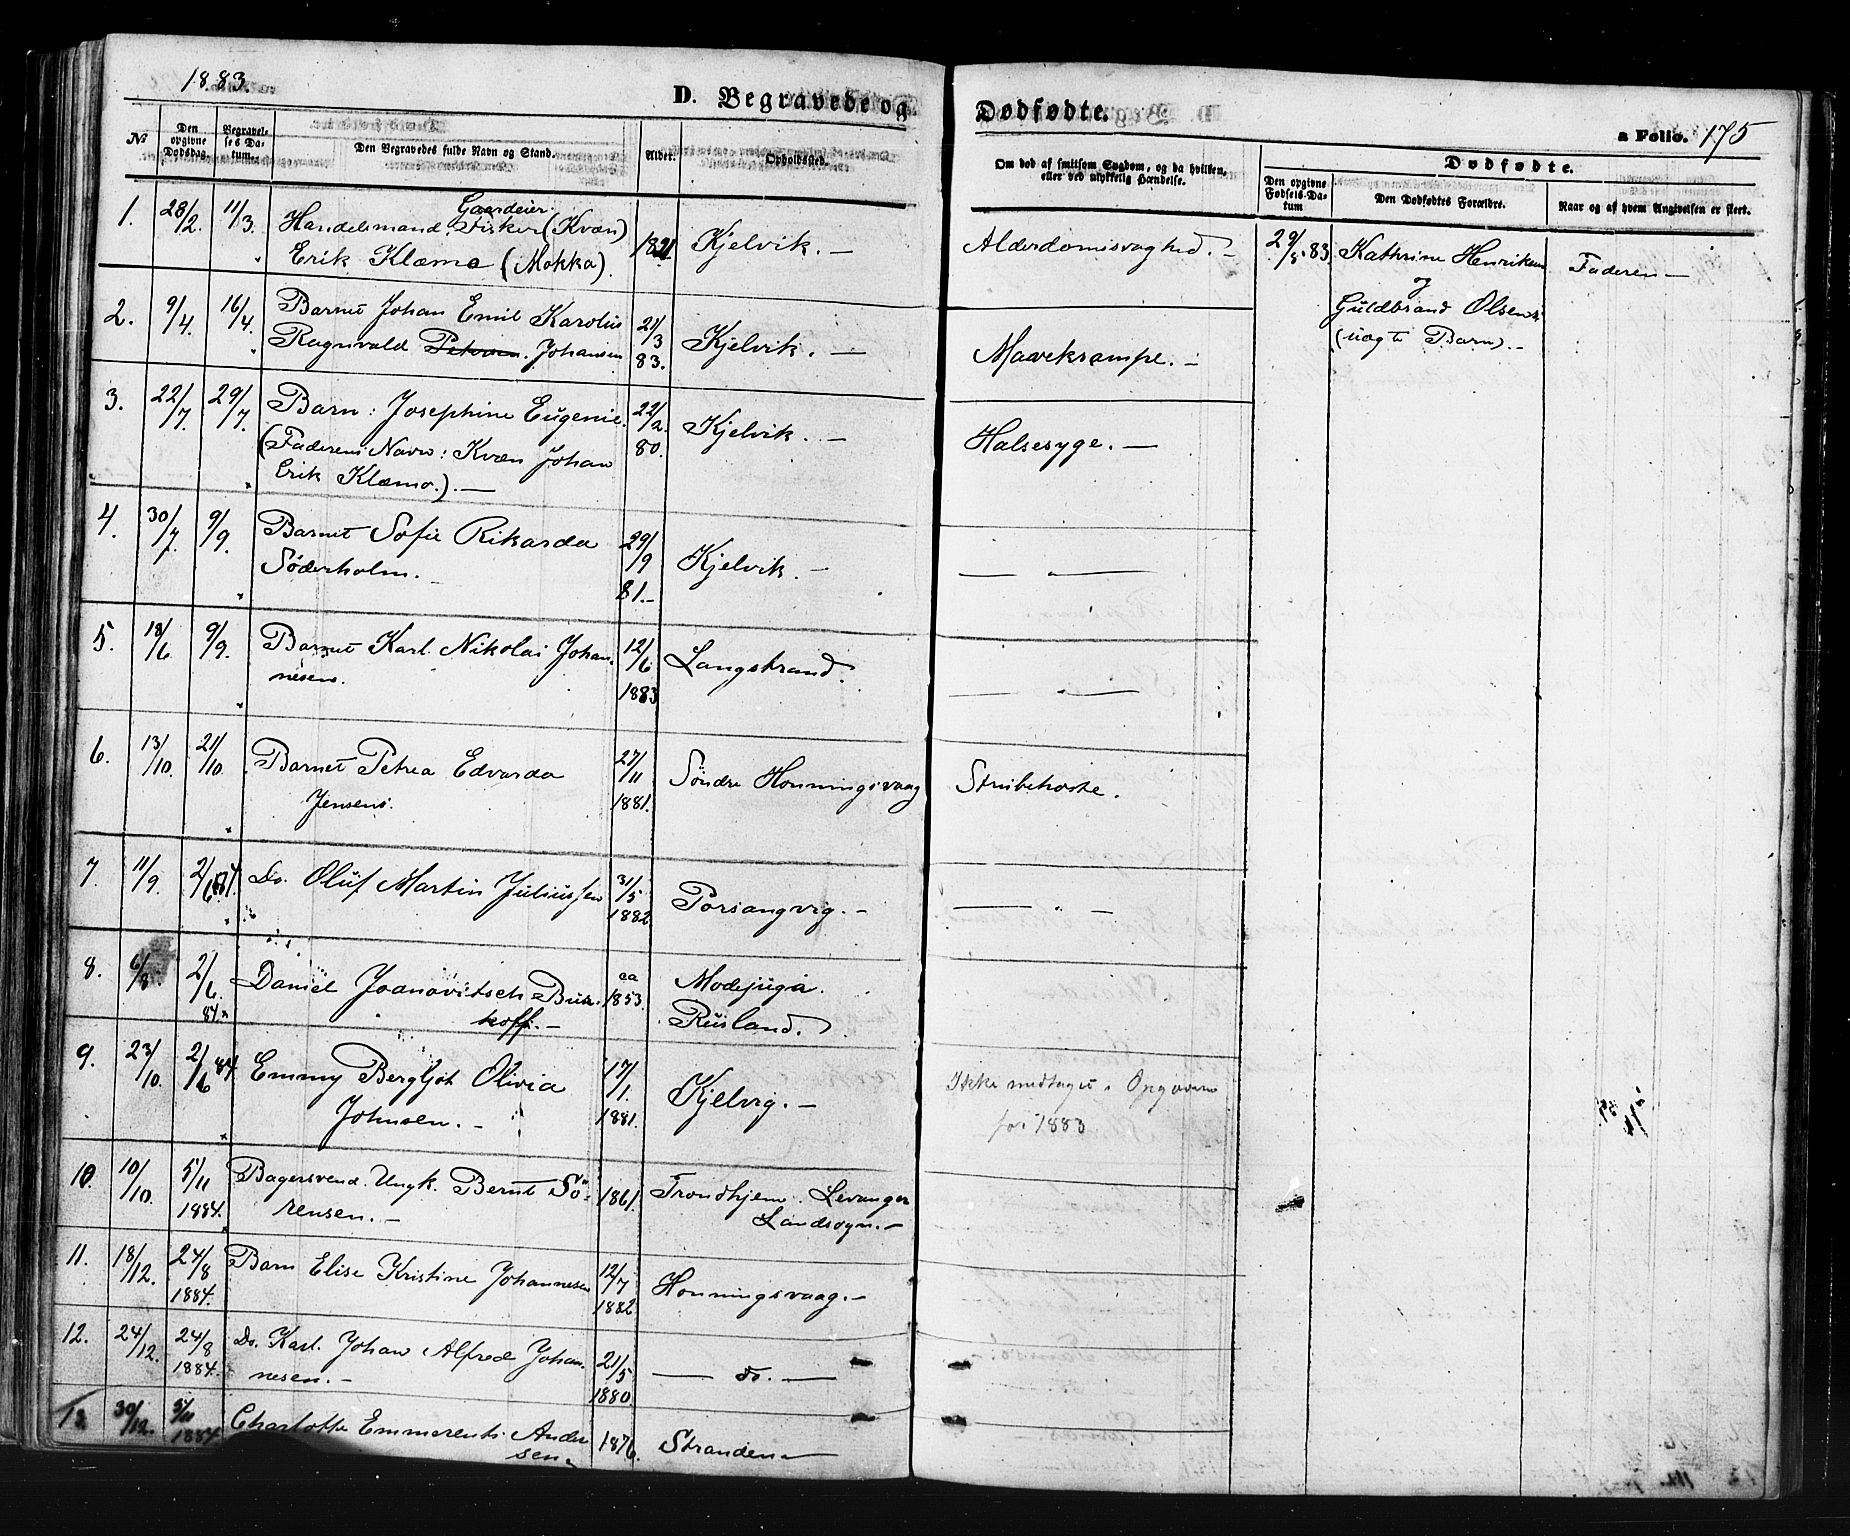 1883.
D. Begravede og Dødfødte.
a Folio. 175
№
Den opgivne Dødsdag.
Begravelses Datum.
Den Begravedes fulde Navn og Stand.
Alder.
Opholdssted.
Om død af smitsom Sygdom, og da hvilken, eller ved ulykkelig Hændelse.
Dødfødte.
Den opgivne Fødsels-Datum
Den Dødfødtes Forældre.
Naar og af hvem Angivelsen er skeet.
1. 28/2. 11/3. Gaardeier
Handelsmand, Fisker (Kvæn)
Erik Klæmo (Mokka). Kjelvik. —
Alderdomsvaghed. —
29/8. 83 Kathrine Henriksen
og
Guldbrand Olsen
(uægte Barn). —
Faderen —
2. 9/4. 16/4. Barnet Johan Emil Karolius
Ragnvald Petersen. Johansen
21/3 83. Kjelvik. —
Mavekrampe. —
3. 22/7. 29/7. Barn: Josephine Eugenie.
(Faderens Navn: Kvæn Johan
Erik Klæmo.). —
22/2. 80. Kjelvik. —
Halsesyge. —
4. 30/7. 9/9. Barnet Sofie Rikarda
Söderholm. —
29/9 81. — Kjelvik. —
— " —
5. 18/6. 9/9. Barnet Karl Nikolai Johan-
nesen.
12/6. 1883 Langstrand.
— " —
6. 13/10. 21/10. Barnet Petrea Edvarda
Jensen.
27/11 1881. Söndre Honningsvaag
Strubehoste.
7. 11/9. 2/6 84. Do. Oluf Martin Juliussen
31/5 1882 Porsangvig. —
— " —
8. 6/8. 2/6. 84. Daniel Joanovitsch Bur-
koff. —
ca 1853. Modejuga.
Rusland.
9. 23/10. 2/6 84. Emmy Bergljot Olivia
Johnsen. —
17/1. 1881. Kjelvig. —
Ikke medtaget i Opgaven
for 1883
10. 10/10. 5/11 1884. Bagersvend. Ungk. Bernt Sö-
rensen. —
1861. Trondhjem. Levanger
Landsogn. —
11. 18/12. 24/8 1884. Barn Elise Kristine Johannesen
12/7 1882 Honningsvaag. —
12. 24/12. 24/8 1884. Do. Karl Johan Alfred Johan-
nesen. —
21/5 1880. — do. —
13 30/12. 5/11 1884 Charlotte Emmerenti Ander
sen.
1876. Stranden